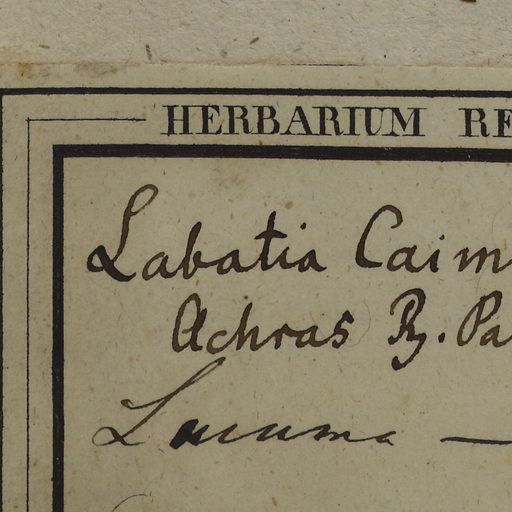 HERBARIUM RE
Labatia Caim
Achras Rz. Pa
Lucuma —